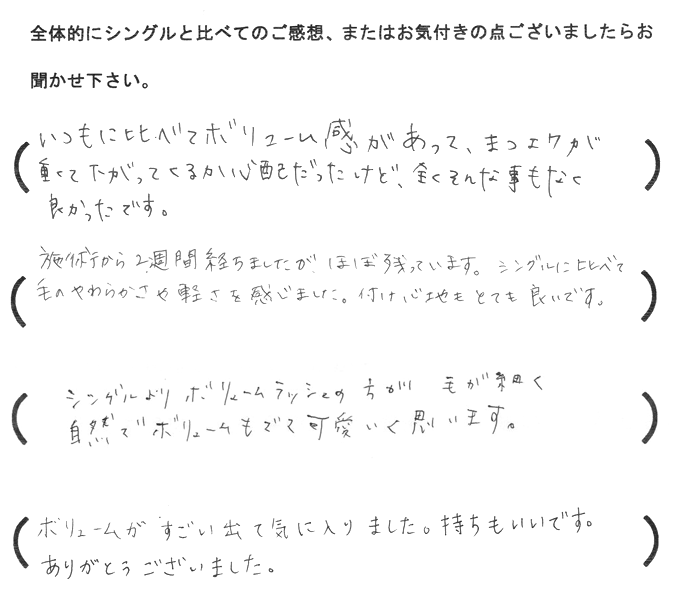 全体的にシングルと比べてのご感想、またはお気付きの点ございましたらお
聞かせ下さい。
いつもに比べてボリューム感があって、まつエクが
重くて下がってくるか心配だったけど、全くそんな事もなく
良かったです。
施術から2週間経ちましたが、ほぼ残っています。シングルに比べて
毛のやわらかさや軽さを感じました。付け心地もとても良いです。
シングルよりボリュームラッシュの方が毛が細く
自然でボリュームもでて可愛いく思います。
ボリュームがすごい出て気に入りました。持ちもいいです。
ありがとうございました。